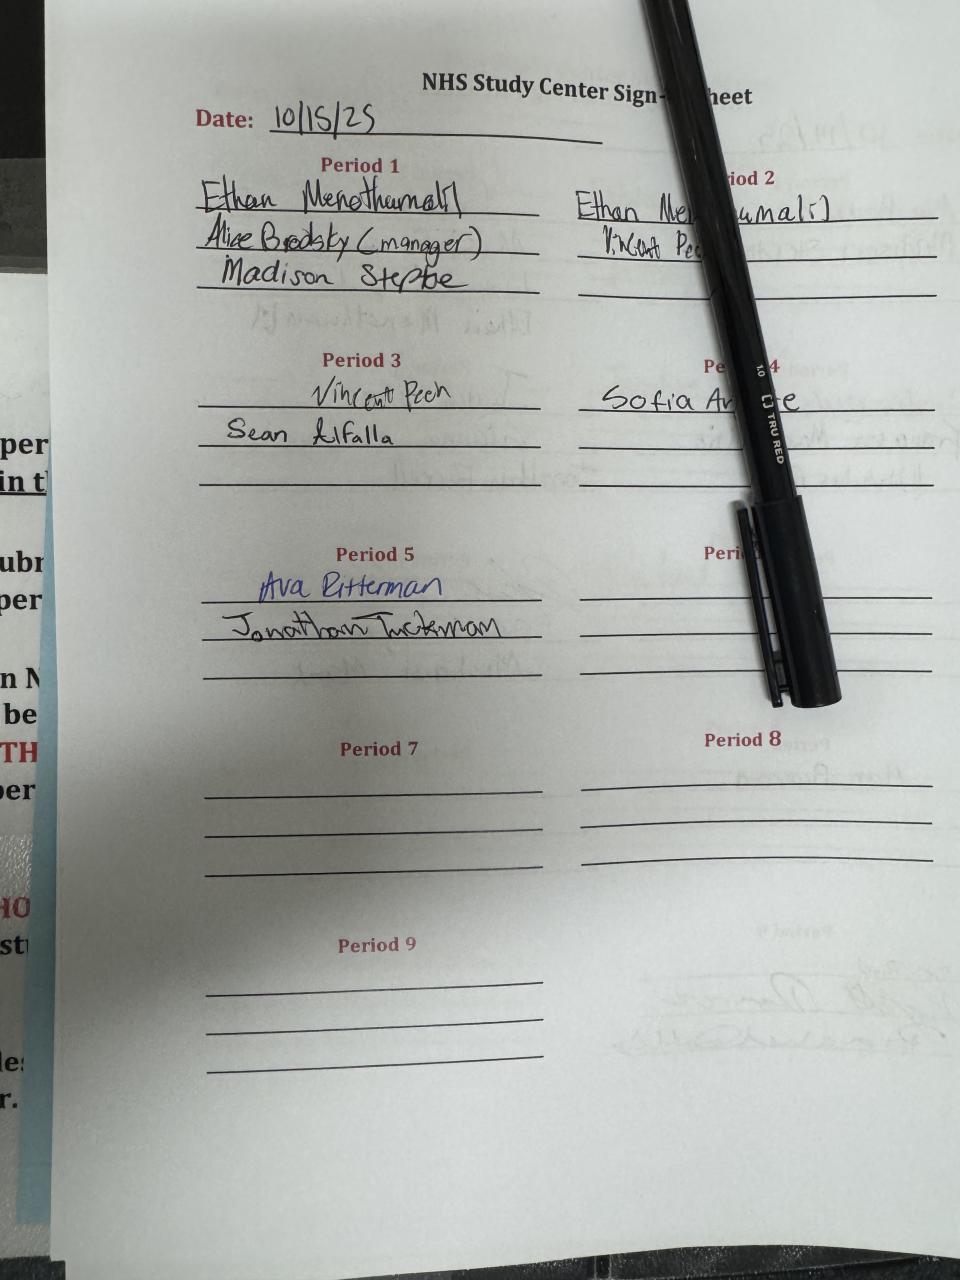 NHS Study Center Sign- heet
Date: 10/15/25
Period 1
Ethan Menothumali
Alice Brodsky (manager)
Madison Stepbe
iod 2
Ethan Me umali
Vincent Pe
Period 3
Vincent Pech
Sean Alfalla
Pe 4
Sofia Ar e
Period 5
Ava Ritterman
Jonathan Tuckerman
Peri
Period 7
Period 8
Period 9
1.0 TRU RED
per
in t
ubr
per
n N
be
TH
per
HO
st
le
r.